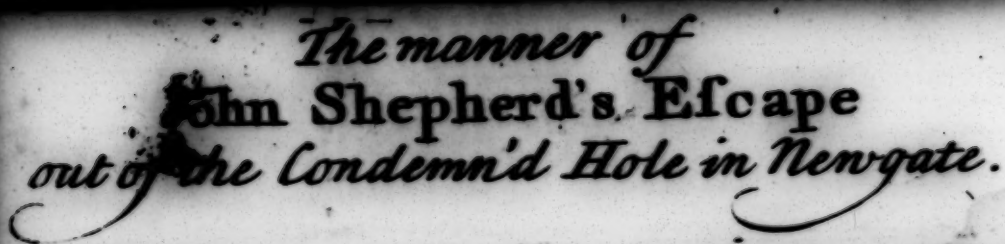 The manner of
John Shepherd's Eſcape
out of the Condemn'd Hole in Newgate.